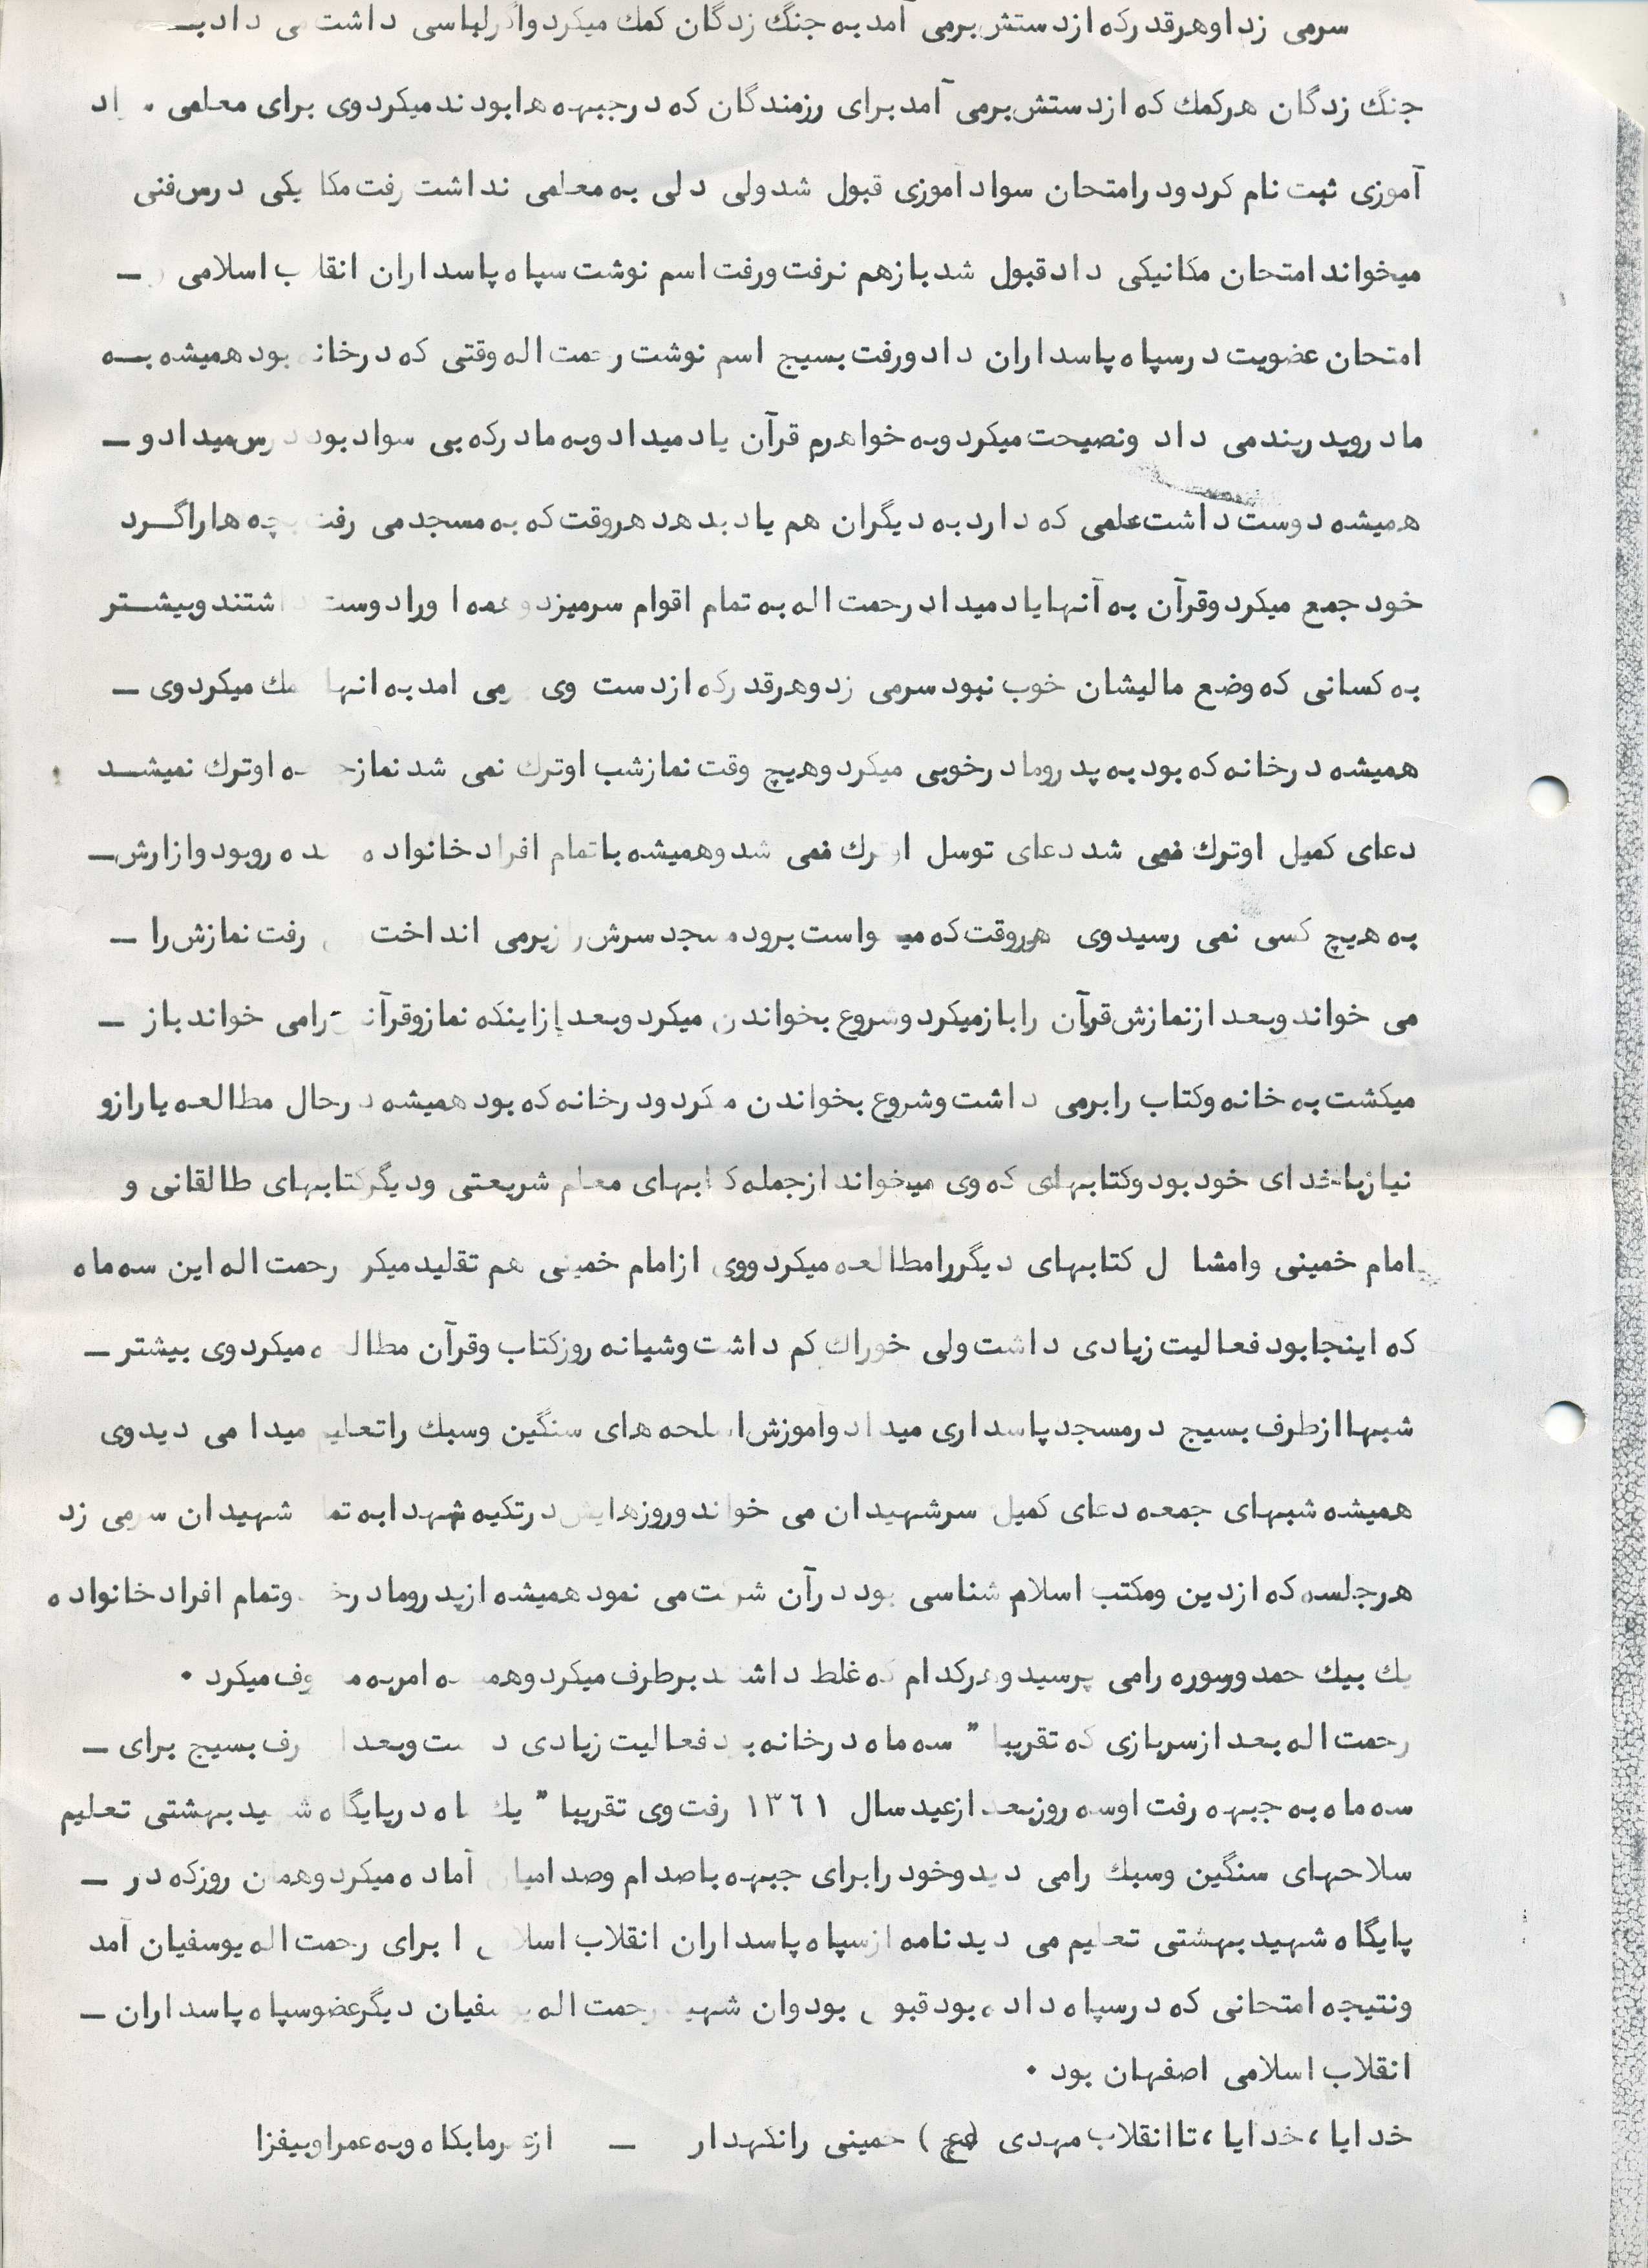 سرمی زد او هر قدر که از دستش برمی آمد به جنگ زدگان کمک میکرد و اگر لباسی داشت می داد بـه
جنگ زدگان هر کمک که از دستش برمی آمد برای رزمندگان که در جبهه ها بودند میکرد وی برای معلمی
آموزی ثبت نام کرد و در امتحان سواد آموزی قبول شد ولی دلی به معلمی نداشت رفت مکانیکی درس فنی
میخواند امتحان مکانیکی داد قبول شد باز هم نرفت و رفت اسم نوشت سپاه پاسداران انقلاب اسلامی ـ
امتحان عضویت در سپاه پاسداران داد و رفت بسیج اسم نوشت رحمت اله وقتی که در خانه بود همیشه بــه
مادر و پدر پند می داد و نصیحت میکرد و به خواهرم قرآن یاد میداد و به مادر که بی سواد بود درس میداد و ـ
همیشه دوست داشت علمی که دارد به دیگران هم یاد بدهد هر وقت که به مسجد می رفت بچه ها را گــرد
خود جمع میکرد و قرآن به آنها یاد میداد رحمت اله به تمام اقوام سرمیزد و همه او را دوست داشتند و بیشــتر
به کسانی که وضع مالیشان خوب نبود سرمی زد و هر قدر که از دست وی برمی امد به انها کمک میکرد وی ـ
همیشه در خانه که بود به پدر و مادر خوبی میکرد و هیچ وقت نماز شب او ترک نمی شد نماز جمعه او ترک نمیشــد
دعای کمیل او ترک نمی شد دعای توسل او ترک نمی شد و همیشه با تمام افراد خانواده خنده رو بود و ازارش ـ
به هیچ کسی نمی رسید وی هر وقت که میخواست برود مسجد سرش را زیرمی انداخت می رفت نمازش را ـ
می خواند و بعد از نمازش قرآن را باز میکرد و شروع بخواندن میکرد و بعد از اینکه نماز و قرآنش را می خواند باز ـ
میگشت به خانه و کتاب را برمی داشت و شروع بخواندن میکرد و در خانه که بود همیشه در حال مطالعه یا راز و
نیاز با خدای خود بود و کتابهای که وی میخواند از جمله کتابهای معلم شریعتی و دیگر کتابهای طالقانی و
امام خمینی و امثال کتابهای دیگر را مطالعه میکرد و وی از امام خمینی هم تقلید میکرد رحمت اله این سه ماه
که اینجا بود فعالیت زیادی داشت ولی خوراک کم داشت و شبانه روز کتاب و قرآن مطالعه میکرد وی بیشتر ـ
شبها از طرف بسیج در مسجد پاسداری میداد و آموزش اسلحه های سنگین و سبک را تعلیم میدا می دید وی
همیشه شبهای جمعه دعای کمیل سر شهیدان می خواند و روزهایش در تکیه شهدا به تمام شهیدان سرمی زد
هر جلسه که از دین و مکتب اسلام شناسی بود در آن شرکت می نمود همیشه از پدر و مادر خود و تمام افراد خانواده
یک بیک حمد و سوره را می پرسید و هر کدام که غلط داشتند برطرف میکرد و همیشه امر به معروف میکرد ۰
رحمت اله بعد از سربازی که تقریبا " سه ماه در خانه بود فعالیت زیادی داشت و بعد از طرف بسیج برای ـ
سه ماه به جبهه رفت او سه روز بعد از عید سال ۱۳۶۱ رفت وی تقریبا " یک ماه در پایگاه شهید بهشتی تعلیم
سلاحهای سنگین و سبک را می دید و خود را برای جبهه با صدام و صدامیان آماده میکرد و همان روز که در ـ
پایگاه شهید بهشتی تعلیم می دید نامه از سپاه پاسداران انقلاب اسلامی ا برای رحمت اله یوسفیان آمد
و نتیجه امتحانی که در سپاه داده بود قبول بود و ان شهید رحمت اله یوسفیان دیگر عضو سپاه پاسداران ـ
انقلاب اسلامی اصفهان بود ۰
خدایا ، خدایا ، تا انقلاب مهدی (عج) خمینی را نگهدار ـ از عمر ما بکاه و به عمر او بیفزا